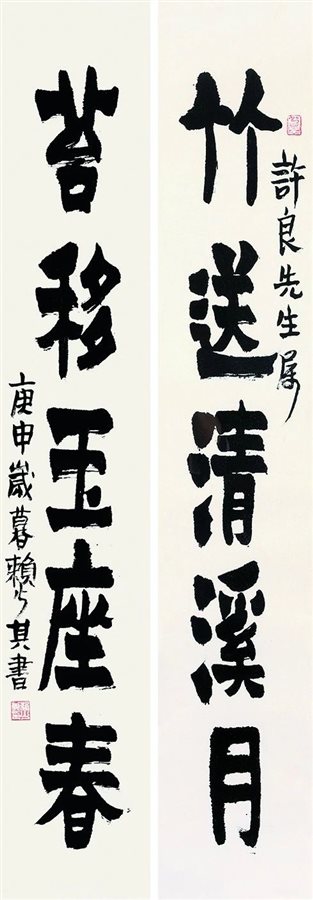 許良先生属
竹送清溪月
苔移玉座春
庚申歲暮賴少其書